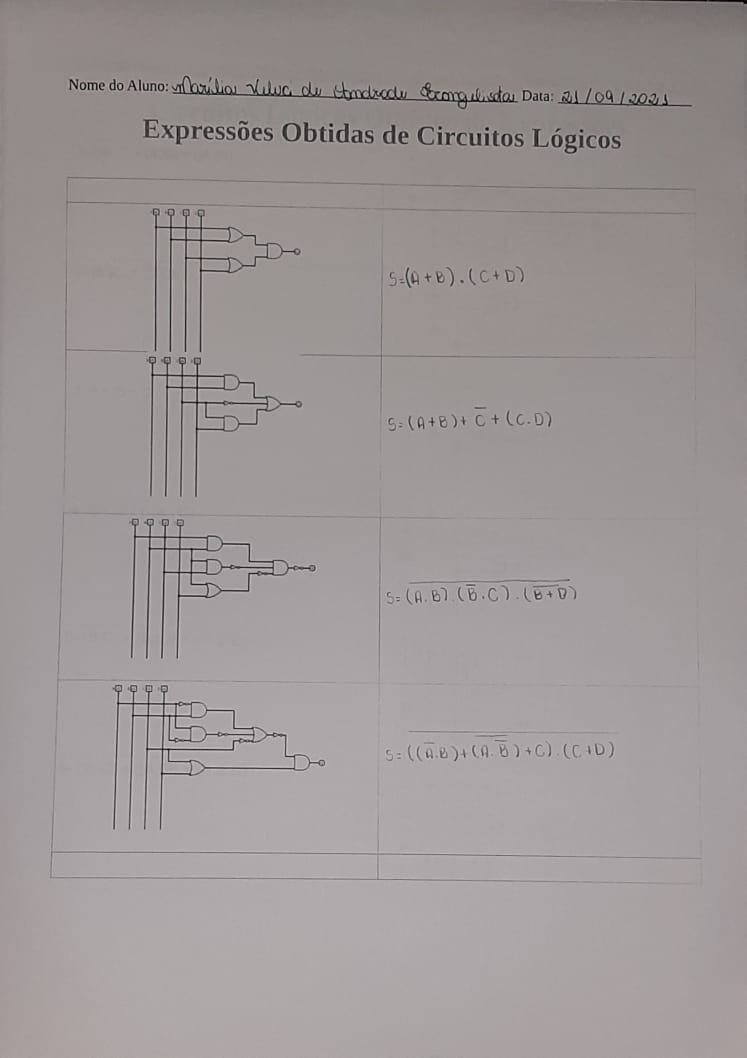 Nome do Aluno: Marília Silva de Andrade Evangelista Data: 21/09/2021
Expressões Obtidas de Circuitos Lógicos
S=(A+B).(C+D)
S=(A+B)+C̅+(C.D)
S=(A.B).(B̅.C).(B+D)
S=((A̅.B)+(A.B̅)+C).(C+D)